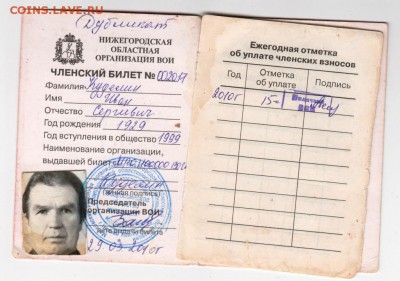 COINS.LAVE.RU
Дубликат
НИЖЕГОРОДСКАЯ
ОБЛАСТНАЯ
ОРГАНИЗАЦИЯ ВОИ
ЧЛЕНСКИЙ БИЛЕТ №
Фамилия
Имя Иван
Отчество Сергеевич
Год рождения 1929
Год вступления в общество 1999
Наименование организации,
выдавшей билет
(личная подпись)
Председатель
организации ВОИ
дата выдачи билета
29.03.2010г
Ежегодная отметка
об уплате членских взносов
Год Отметка об уплате Подпись
2010г 15=
ВОИ